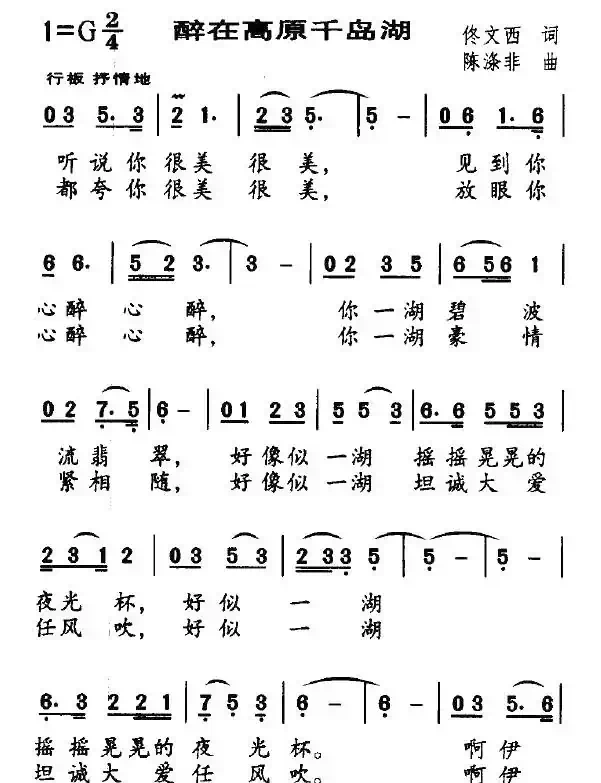 1=G 2/4 醉在高原千岛湖 佟文西 词
陈涤非 曲
行板 抒情地
0 3 5. 3 | 2 1. | 2 3 5. | 5 - | 0 6 1. 6 |
听说你很美 很 美, 见到你
都夸你很美 很 美, 放眼你
6 6. | 5 2 3. | 3 - | 0 2 3 5 | 6 5 6 1 |
心醉 心 醉, 你一湖碧 波
心醉 心 醉, 你一湖豪 情
0 2 7. 5 | 6 - | 0 1 2 3 | 5 5 3 | 6. 6 5 5 3 |
流翡 翠, 好像似一湖 摇摇晃晃的
紧相 随, 好像似一湖 坦诚大 爱
2 3 1 2 | 0 3 5 3 | 2 3 3 5 | 5 - | 5 - |
夜光 杯, 好似 一 湖
任风 吹, 好似 一 湖
6. 3 2 2 1 | 7 5 3 | 6 - | 6 - | 0 3 5. 6 |
摇摇晃晃的 夜 光 杯。 啊伊
坦诚大 爱任 风 吹。 啊伊